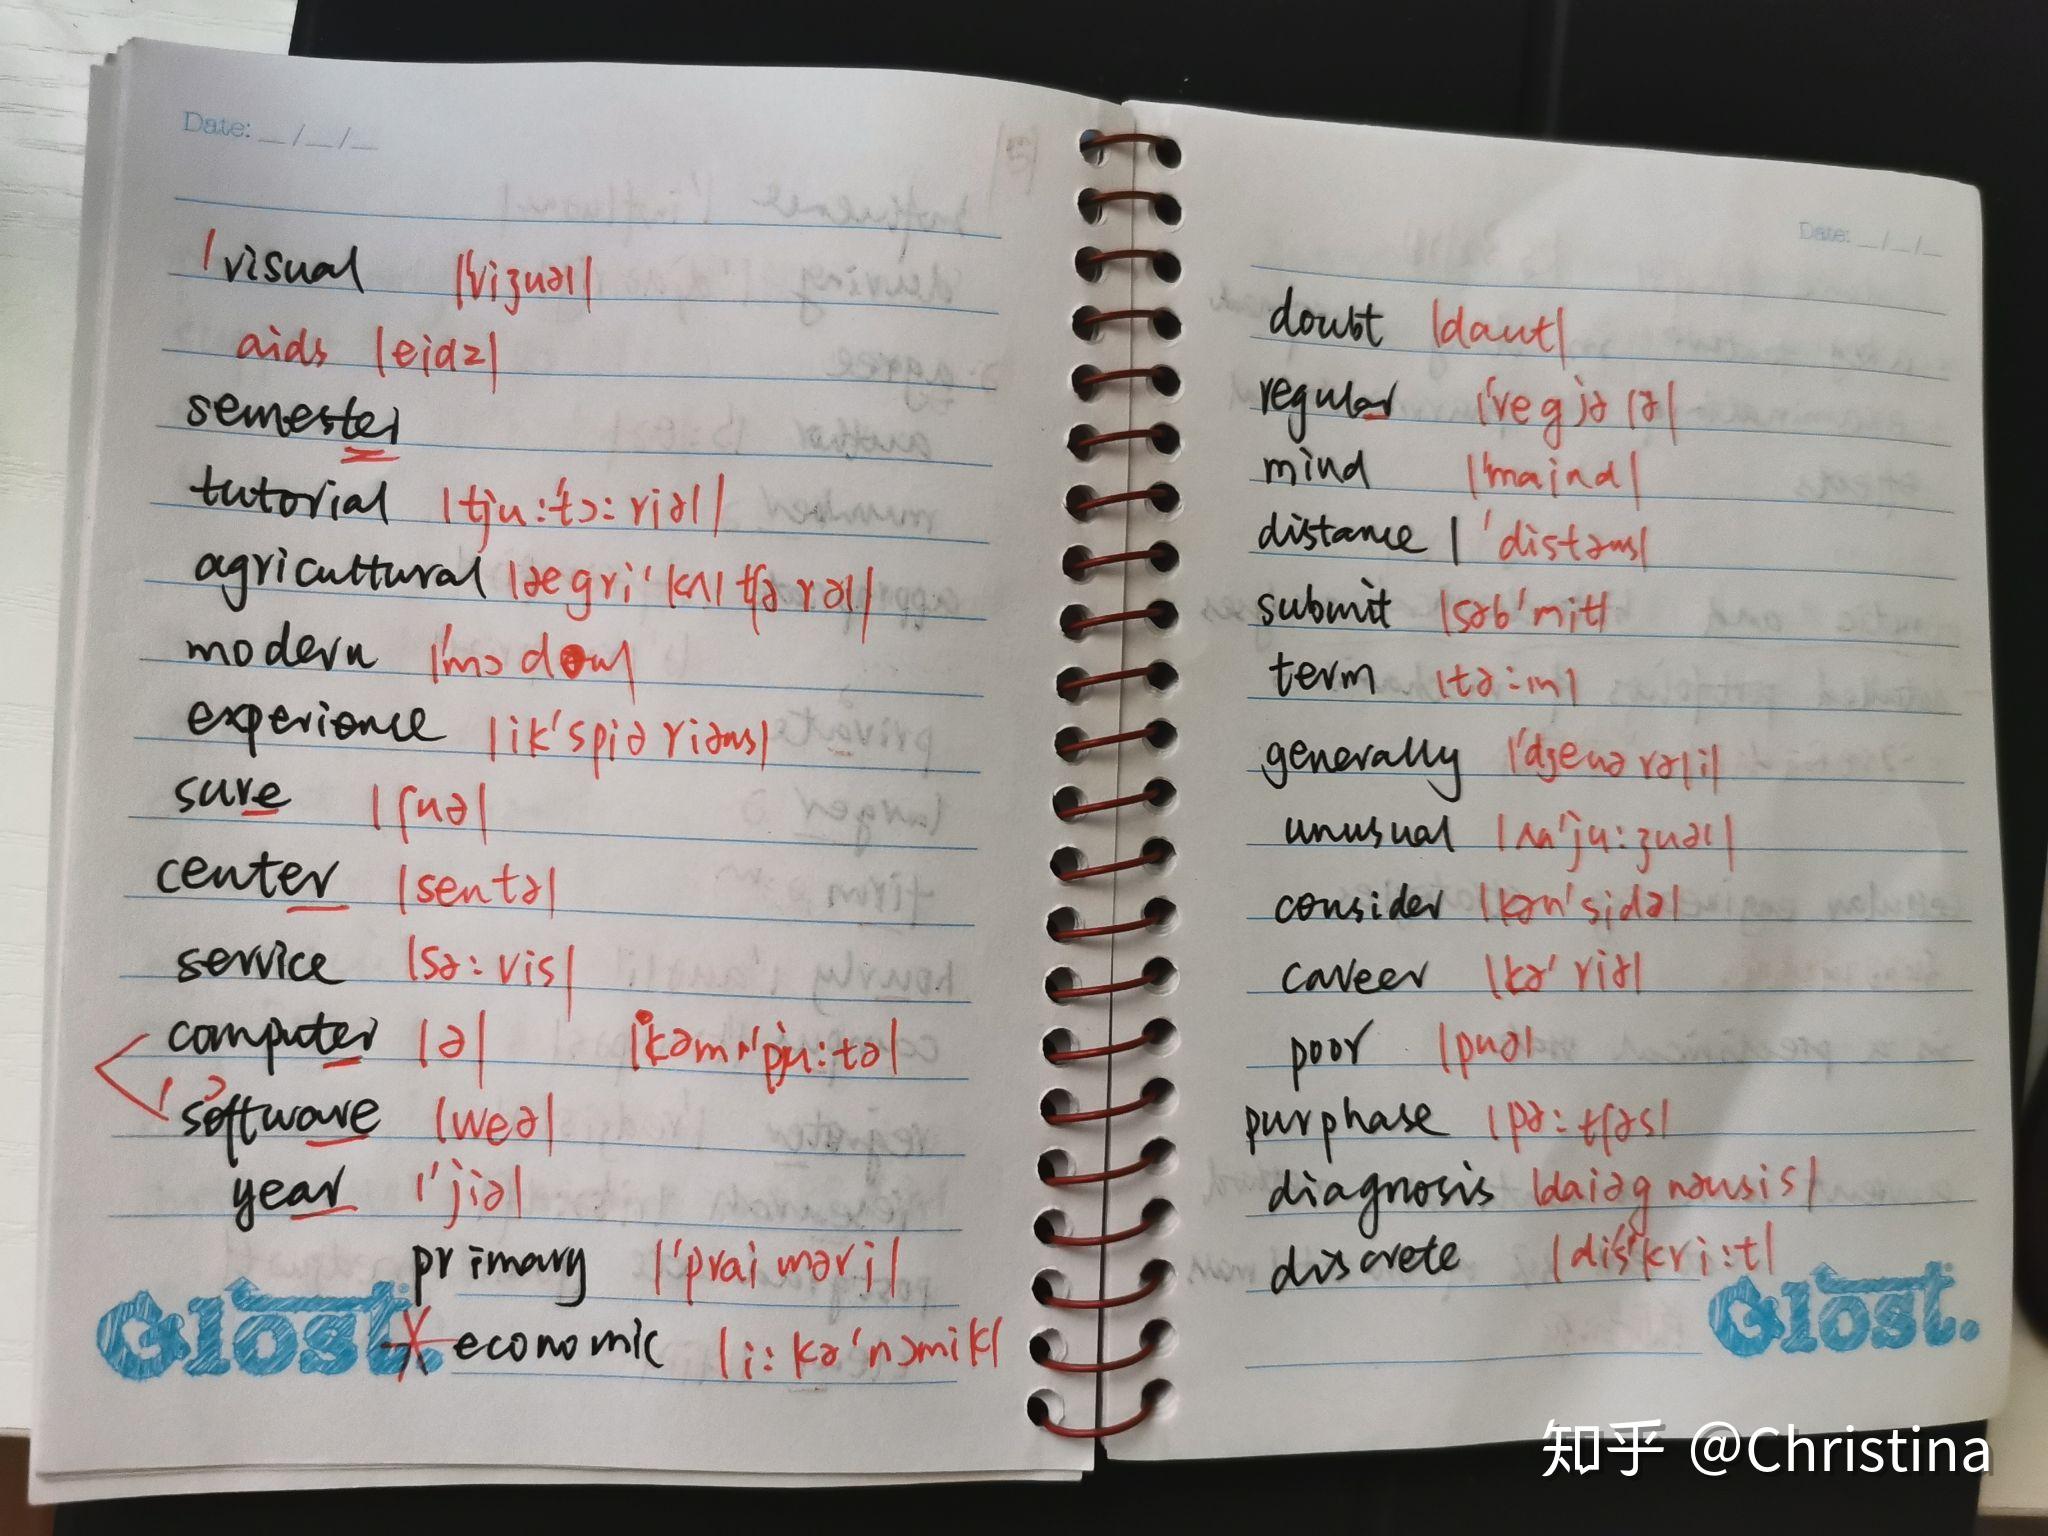 Date: _/_/_
visual |'viʒuəl|
aids |eidz|
semester
tutorial |tju:'tɔ:riəl|
agricultural |ægri'kʌltʃərəl|
modern |'mɔdən|
experience |ik'spiəriəns|
sure |ʃuə|
center |sentə|
service |sə:vis|
computer |ə| |kəm'pju:tə|
software |weə|
year |'jiə|
primary |'praiməri|
economic |i:kə'nɔmik|
Glost.
Date: _/_/_
doubt |daut|
regular |'regjələ|
mind |'maind|
distance |'distəns|
submit |səb'mit|
term |tə:m|
generally |'dʒenərəli|
unusual |ʌn'ju:ʒuəl|
consider |kən'sidə|
career |kə'riə|
poor |puə|
purphase |pə:tʃəs|
diagnosis |daiəgnəusis|
discrete |dis'kri:t|
Glost.
知乎 @Christina